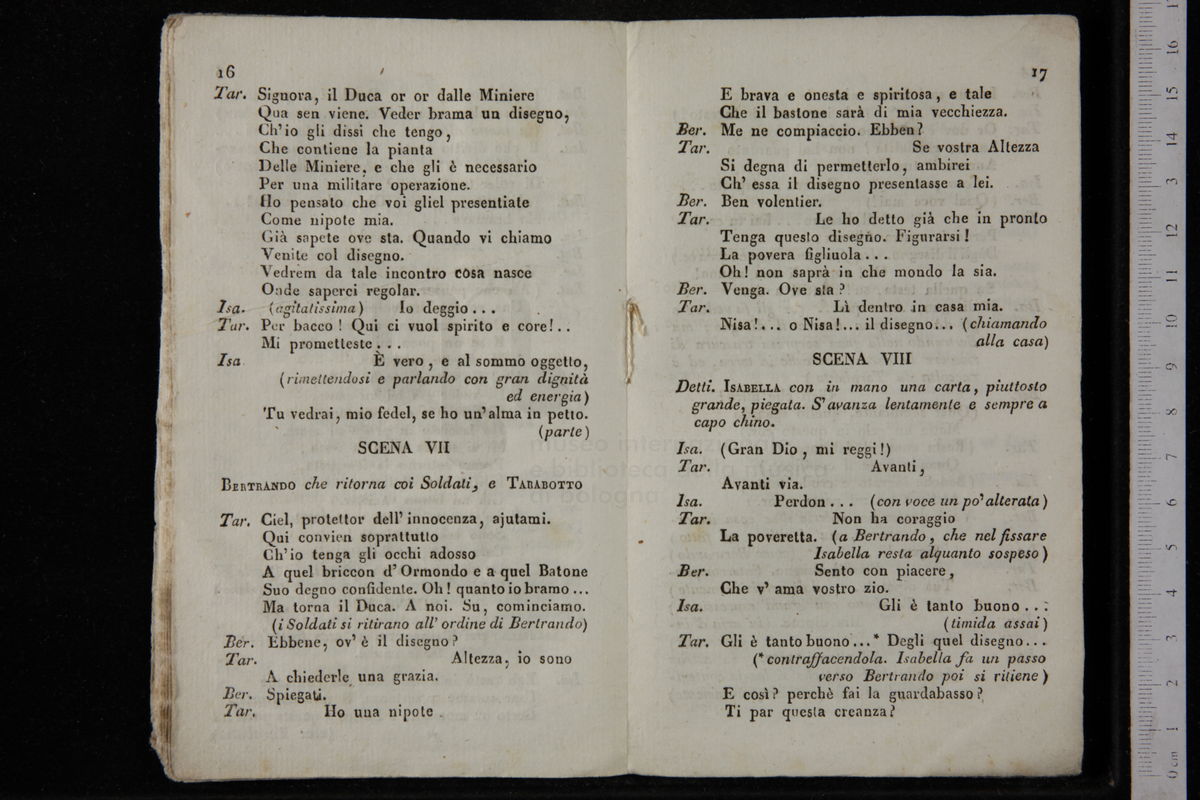 16
Tar. Signora, il Duca or or dalle Miniere
Qua sen viene. Veder brama un disegno,
Ch'io gli dissi che tengo,
Che contiene la pianta
Delle Miniere, e che gli è necessario
Per una militare operazione.
Ho pensato che voi gliel presentiate
Come nipote mia.
Già sapete ove sta. Quando vi chiamo
Venite col disegno.
Vedrem da tale incontro cosa nasce
Onde saperci regolar.
Isa. (agitatissima) Io deggio...
Tar. Per bacco! Qui ci vuol spirito e core!..
Mi prometteste...
Isa È vero, e al sommo oggetto,
(rimettendosi e parlando con gran dignità
ed energia)
Tu vedrai, mio fedel, se ho un'alma in petto.
(parte)
SCENA VII
BERTRANDO che ritorna coi Soldati, e TARABOTTO
Tar. Ciel, protettor dell' innocenza, ajutami.
Qui convien soprattutto
Ch'io tenga gli occhi adosso
A quel briccon d'Ormondo e a quel Batone
Suo degno confidente. Oh! quanto io bramo...
Ma torna il Duca. A noi. Su, cominciamo.
(i Soldati si ritirano all' ordine di Bertrando)
Ber. Ebbene, ov' è il disegno?
Tar. Altezza, io sono
A chiederle una grazia.
Ber. Spiegati.
Tar. Ho una nipote
17
E brava e onesta e spiritosa, e tale
Che il bastone sarà di mia vecchiezza.
Ber. Me ne compiaccio. Ebben?
Tar. Se vostra Altezza
Si degna di permetterlo, ambirei
Ch' essa il disegno presentasse a lei.
Ber. Ben volentier.
Tar. Le ho detto già che in pronto
Tenga questo disegno. Figurarsi!
La povera figliuola...
Oh! non saprà in che mondo la sia.
Ber. Venga. Ove sta?
Tar. Lì dentro in casa mia.
Nisa!... o Nisa!... il disegno... (chiamando
alla casa)
SCENA VIII
Detti. ISABELLA con in mano una carta, piuttosto
grande, piegata. S'avanza lentamente e sempre a
capo chino.
Isa. (Gran Dio, mi reggi!)
Tar. Avanti,
Avanti via.
Isa. Perdon... (con voce un po' alterata)
Tar. Non ha coraggio
La poveretta. (a Bertrando, che nel fissare
Isabella resta alquanto sospeso)
Ber. Sento con piacere,
Che v' ama vostro zio.
Isa. Gli è tanto buono...
(timida assai)
Tar. Gli è tanto buono...* Degli quel disegno...
(*contraffacendola. Isabella fa un passo
verso Bertrando poi si ritiene)
E così? perchè fai la guardabasso?
Ti par questa creanza?